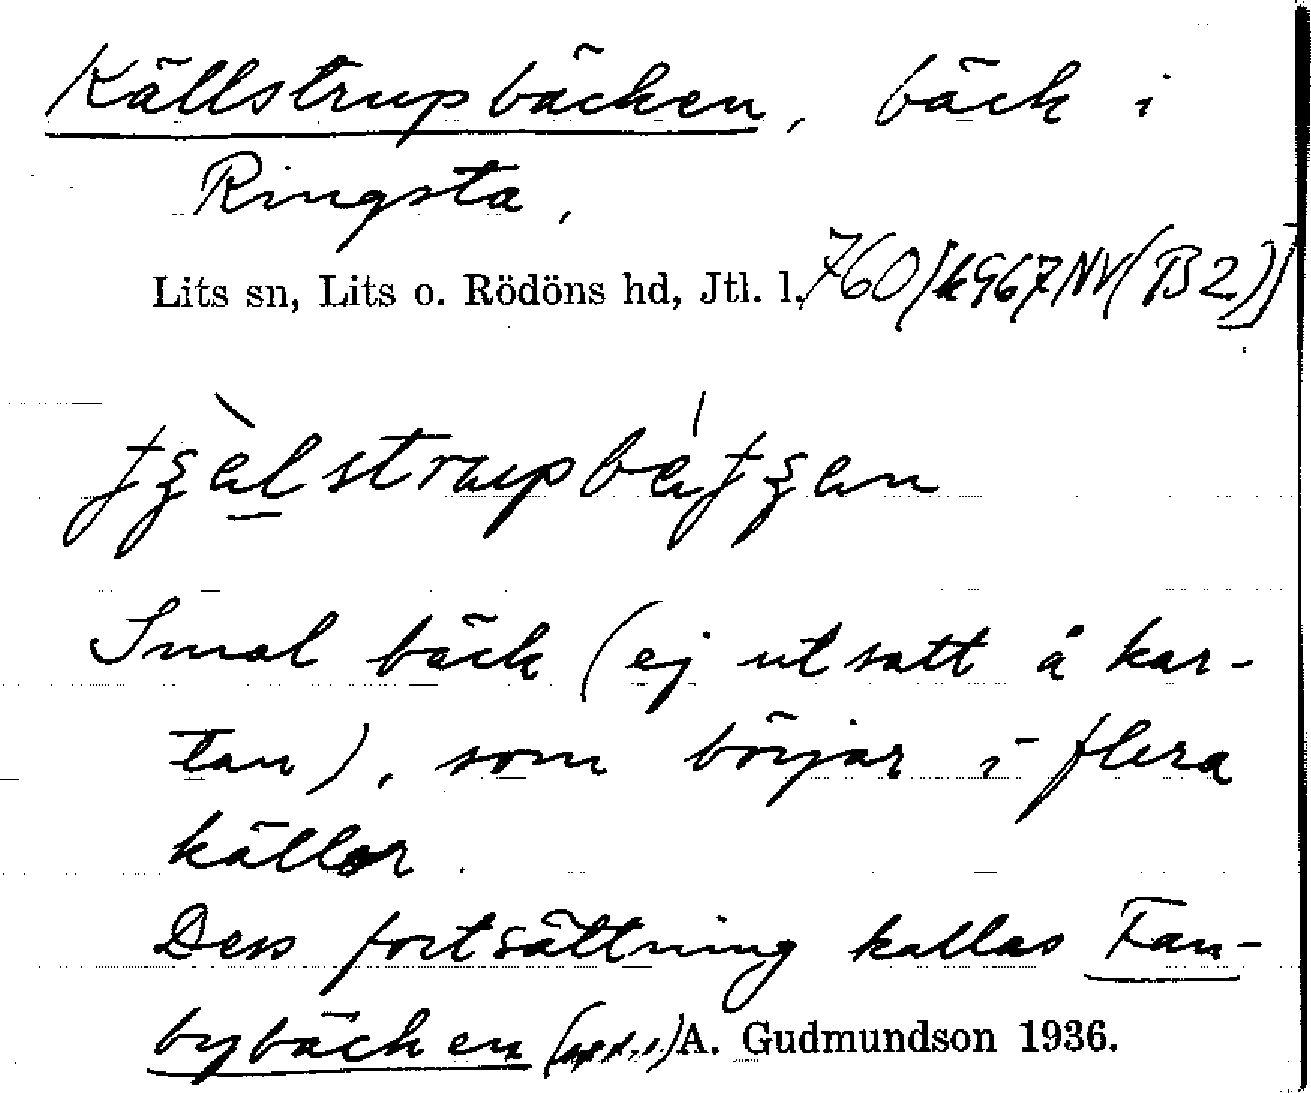 Källstrupbäcken, bäck i
Ringsta,
Lits sn, Lits o. Rödöns hd, Jtl. l. 760/k967NV(B2)
Smal bäck (ej utsatt å kar-
tan), som börjar i flera
källor.
Dess fortsättning kallas Fan-
bybäcken A. Gudmundson 1936.